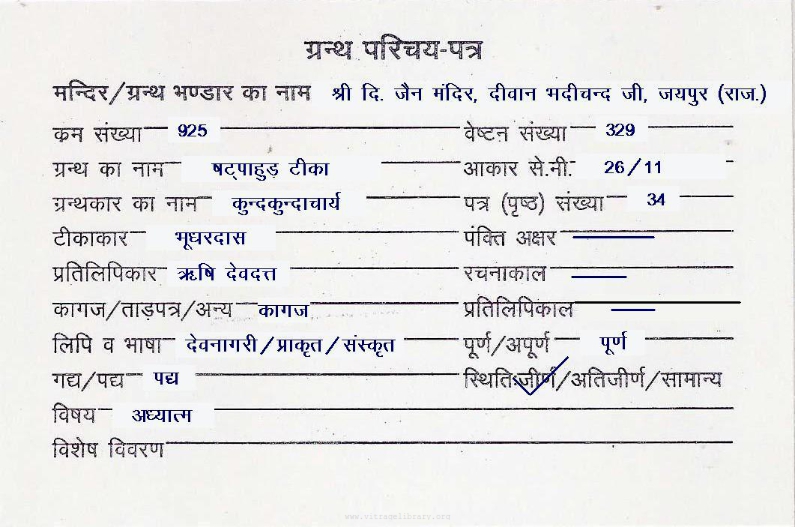 ग्रन्थ परिचय-पत्र
मन्दिर/ग्रन्थ भण्डार का नाम श्री दि. जैन मंदिर, दीवान भदीचन्द जी, जयपुर (राज.)
कम संख्या 925 वेष्टन संख्या 329
ग्रन्थ का नाम षट्पाहुड़ टीका आकार से.मी. 26/11
ग्रन्थकार का नाम कुन्दकुन्दाचार्य पत्र (पृष्ठ) संख्या 34
टीकाकार भूधरदास पंक्ति अक्षर
प्रतिलिपिकार ऋषि देवदत्त रचनाकाल
कागज/ताड़पत्र/अन्य कागज प्रतिलिपिकाल
लिपि व भाषा देवनागरी/प्राकृत/संस्कृत पूर्ण/अपूर्ण पूर्ण
गद्य/पद्य पद्य स्थिति जीर्ण/अतिजीर्ण/सामान्य
विषय अध्यात्म
विशेष विवरण
www.vitragelibrary.com